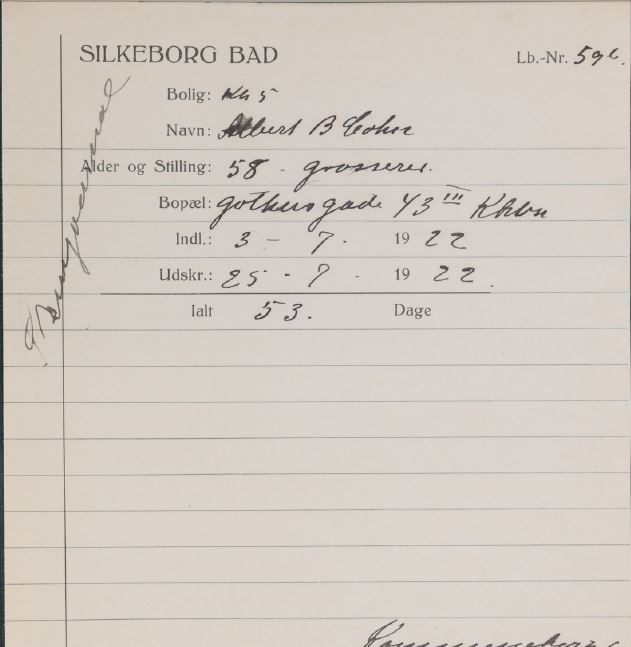 SILKEBORG BAD
Lb.-Nr. 596.
Bolig: Kh 5
Navn: Albert B Cohn
Alder og Stilling: 58 - grosserer.
Bopæl: gothersgade 43 III Khbn
Indl.: 3 - 7. 1922
Udskr.: 25 - 7 - 1922.
Ialt 53. Dage